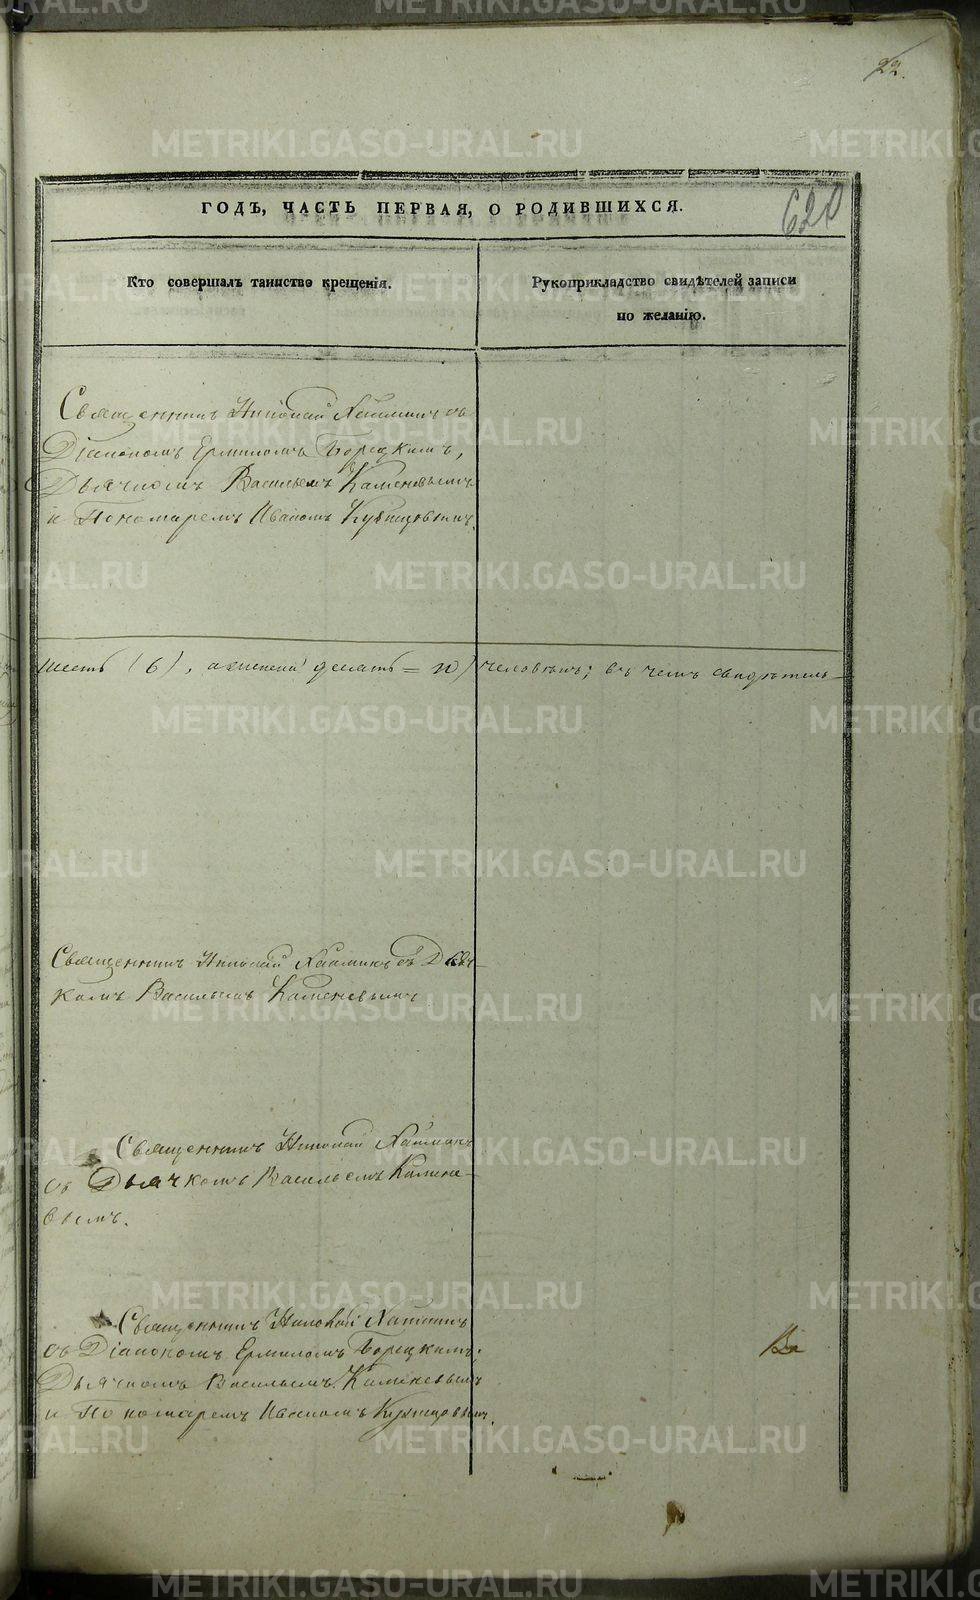 22.
620
ГОДЪ, ЧАСТЬ ПЕРВАЯ, О РОДИВШИХСЯ.
Кто совершалъ таинство крещенія.
Рукоприкладство свидѣтелей записи
по желанію.
Священникъ Николай съ
Діакономъ Ермиломъ Борецкимъ,
Дьячкомъ Васильемъ Каменевымъ
и Пономаремъ Иваномъ Кузнцовымъ.
шесть (6), а женскаго десять = 10) человѣкъ; въ чемъ свидѣтель-
Священникъ Николай съ Дьяч-
комъ Васильемъ Каменевымъ
Священникъ Николай
съ Дьячкомъ Васильемъ Камене-
вымъ.
Священникъ Николай
съ Діакономъ Ермиломъ Борецкимъ,
Дьячкомъ Васильемъ Каменевымъ
и Пономаремъ Иваномъ Кузнцовымъ.
METRIKI.GASO-URAL.RU